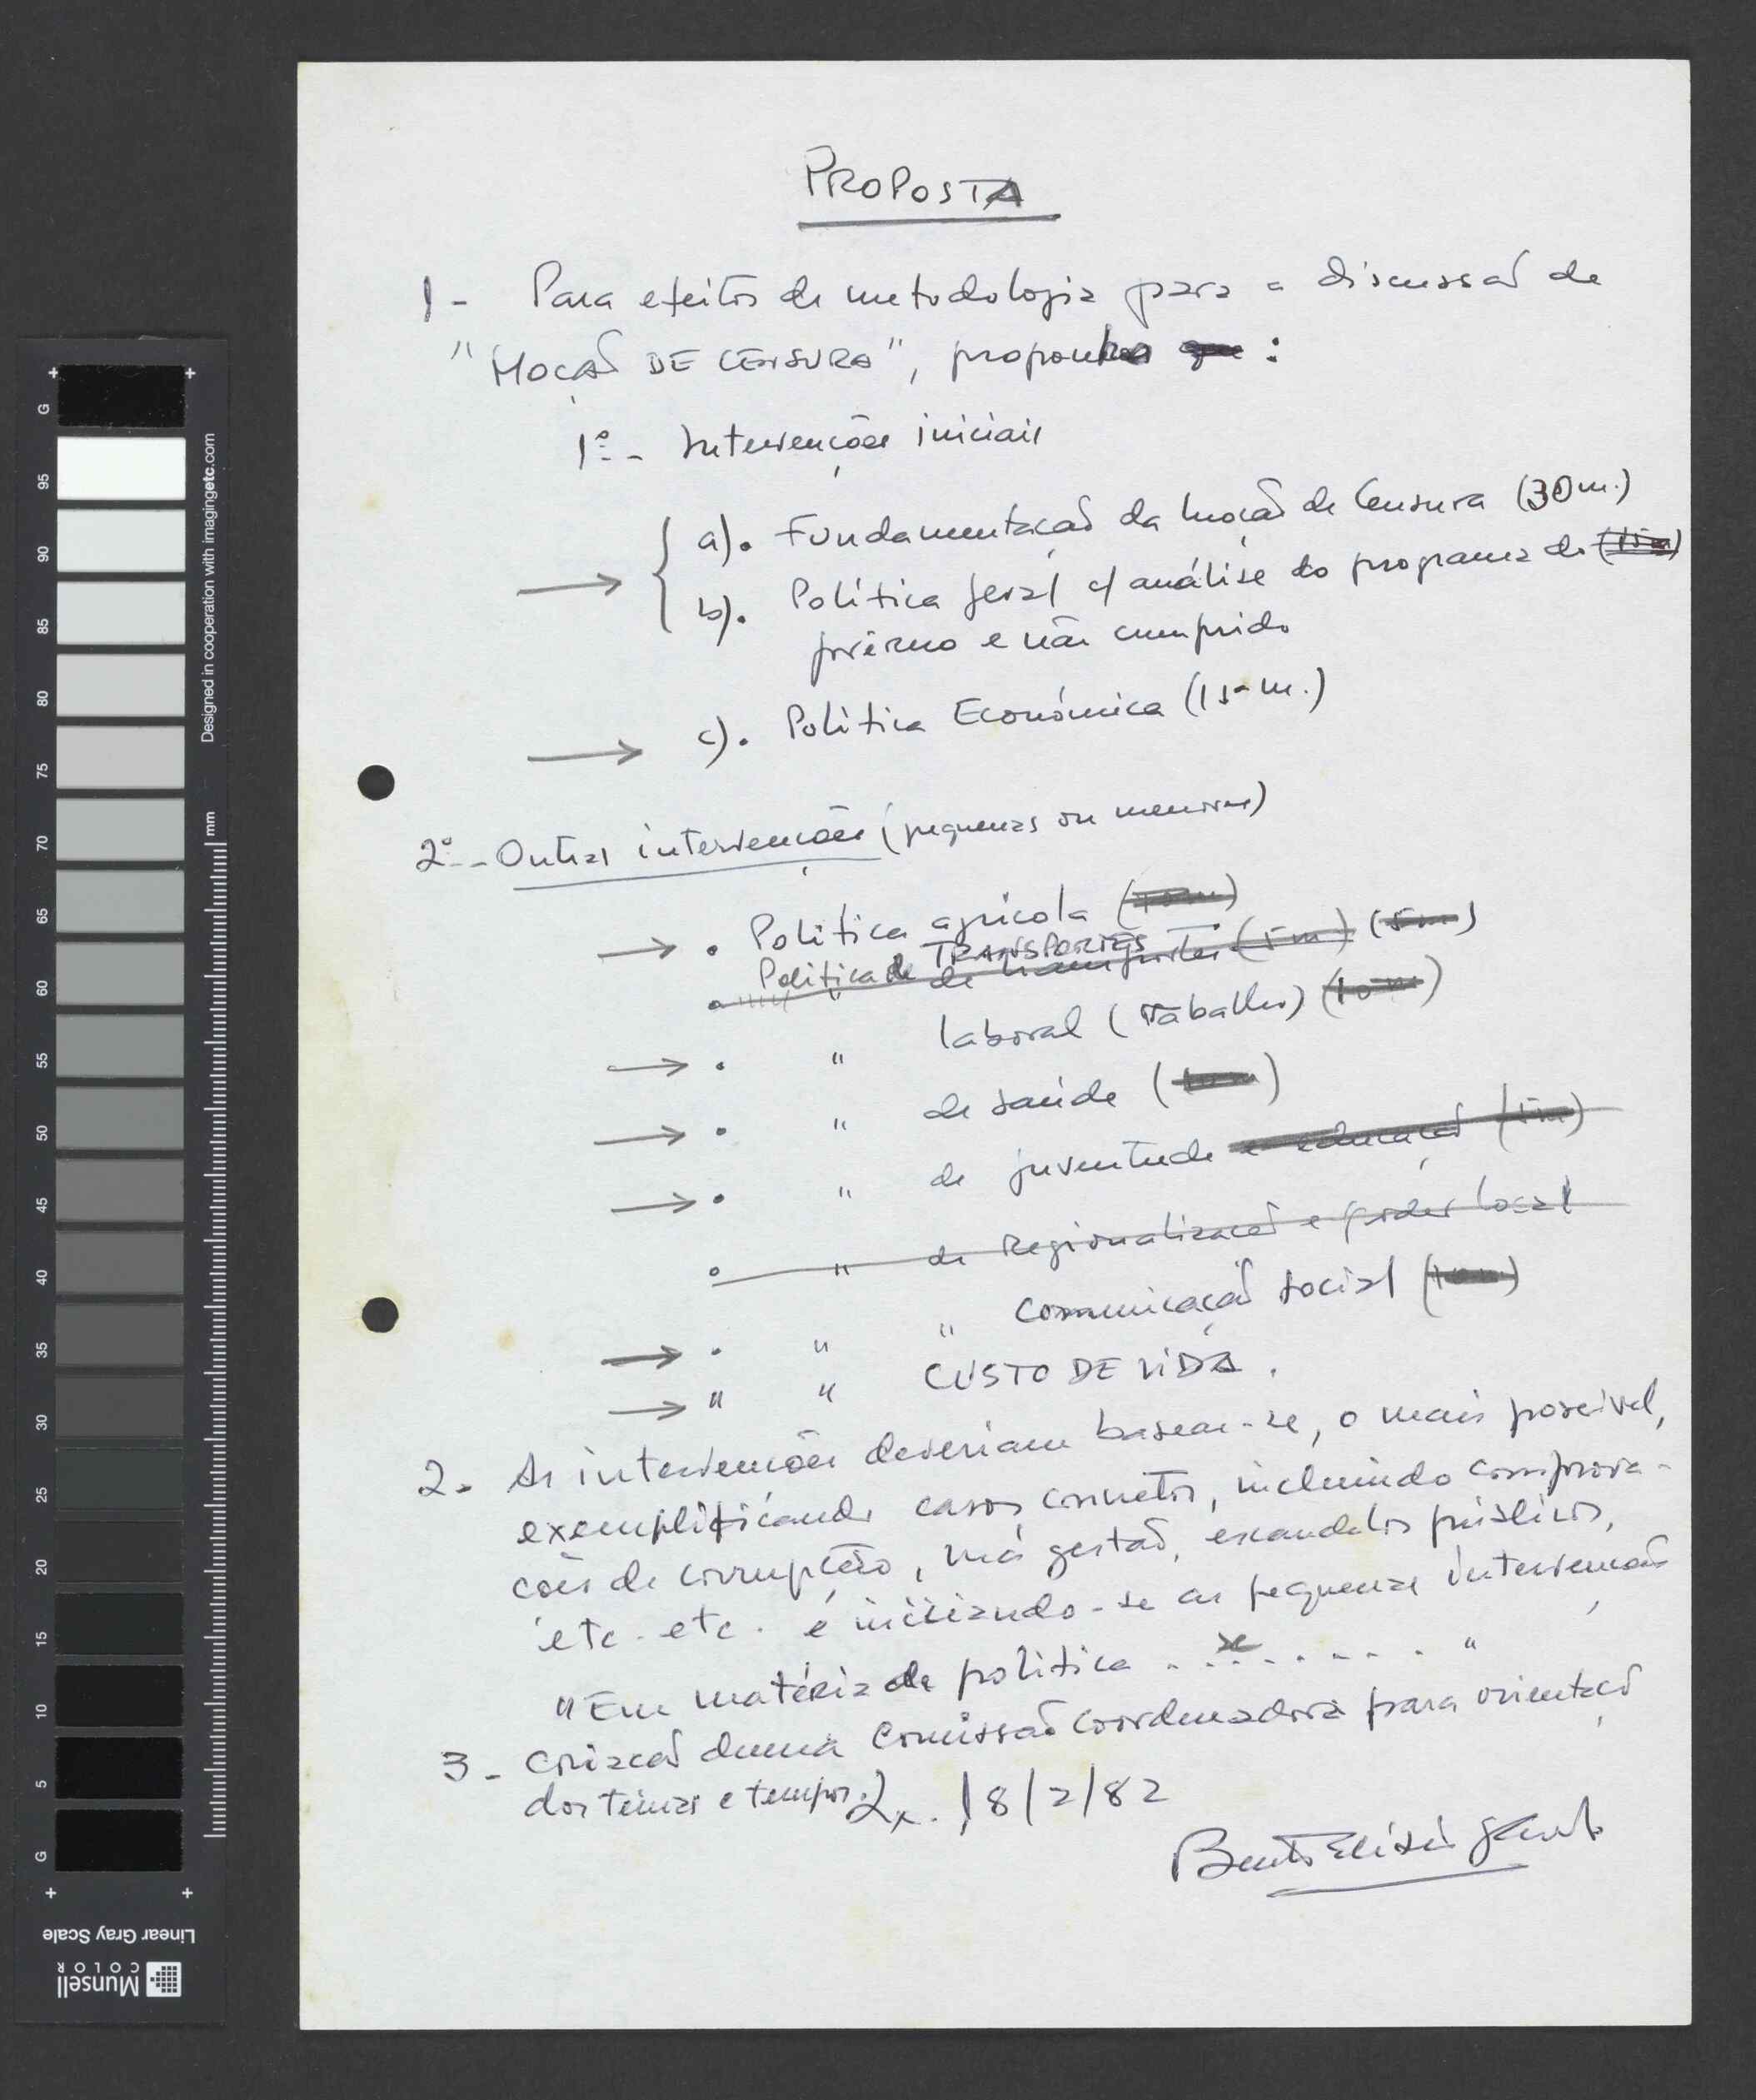 PROPOSTA
1 - Para efeitos de metodologia para a discussão de
"MOÇÃO DE CENSURA", proponho que :
1º - Intervenções iniciais
a). Fundamentação da Moção de Censura (30 m.)
b). Política geral c/ análise do programa do (15 m)
govêrno e não cumprido
c). Política Económica (15 m.)
2º - Outras intervenções (pequenas ou menores)
→ . Política agrícola (10 m)
Política de TRANSPORTES (5m)
. " de transportes (5 m)
→ . " laboral (trabalho) (10 m)
→ . " de saúde (10m)
→ . " de juventude e educação (5m)
. " de Regionalização e poder local
→ . " " Comunicação Social (10m)
→ " " CUSTO DE VIDA .
2 - As intervenções deveriam basear-se, o mais possível,
exemplificando casos concretos, incluindo comprova-
ções de corrupção, má gestão, escandalos públicos,
etc. etc. e iniciando-se as pequenas intervenções
"Em matéria de política . . . . . . . . "
3 - Criação duma Comissão Coordenadora para orientação
dos temas e tempos.
Lx. 18/2/82
Bento Elísio